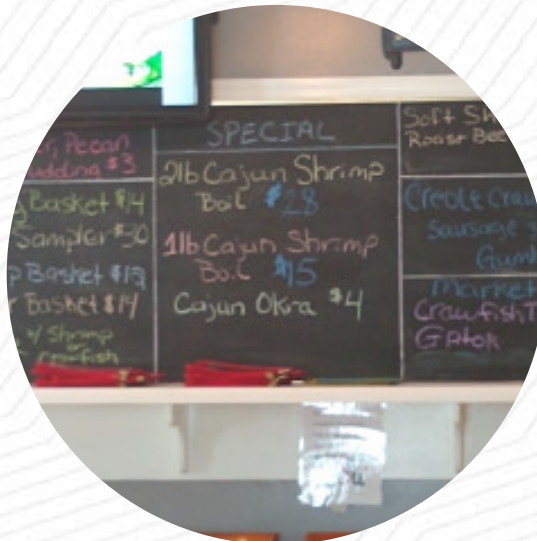 r, Pecan
udding $3
Basket $14
Sampler $30
p Basket $13
r Basket $14
w/ Shrimp
or
crawfish
SPECIAL
2lb Cajun Shrimp
Boil $28
1lb Cajun Shrimp
Boil $15
Cajun Okra $4
Soft Sh
Roast Bee
Creole Craw
Sausage
Gumb
Market
Crawfish T
Gator